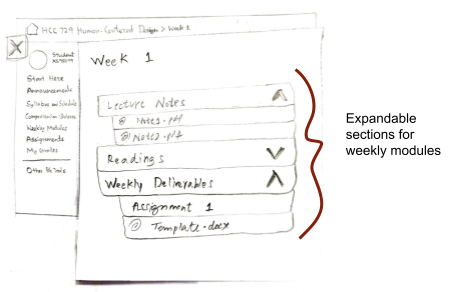 HCC 729 Human-Centered Design > Week 1
Student
Week 1
Start Here
Announcements
Syllabus and Schedule
Weekly Modules
Assignments
My Grades
Other Details
Lecture Notes
Notes1.pdf
Notes2.pdf
Readings
Weekly Deliverables
Assignment 1
Template.docx
Expandable
sections for
weekly modules